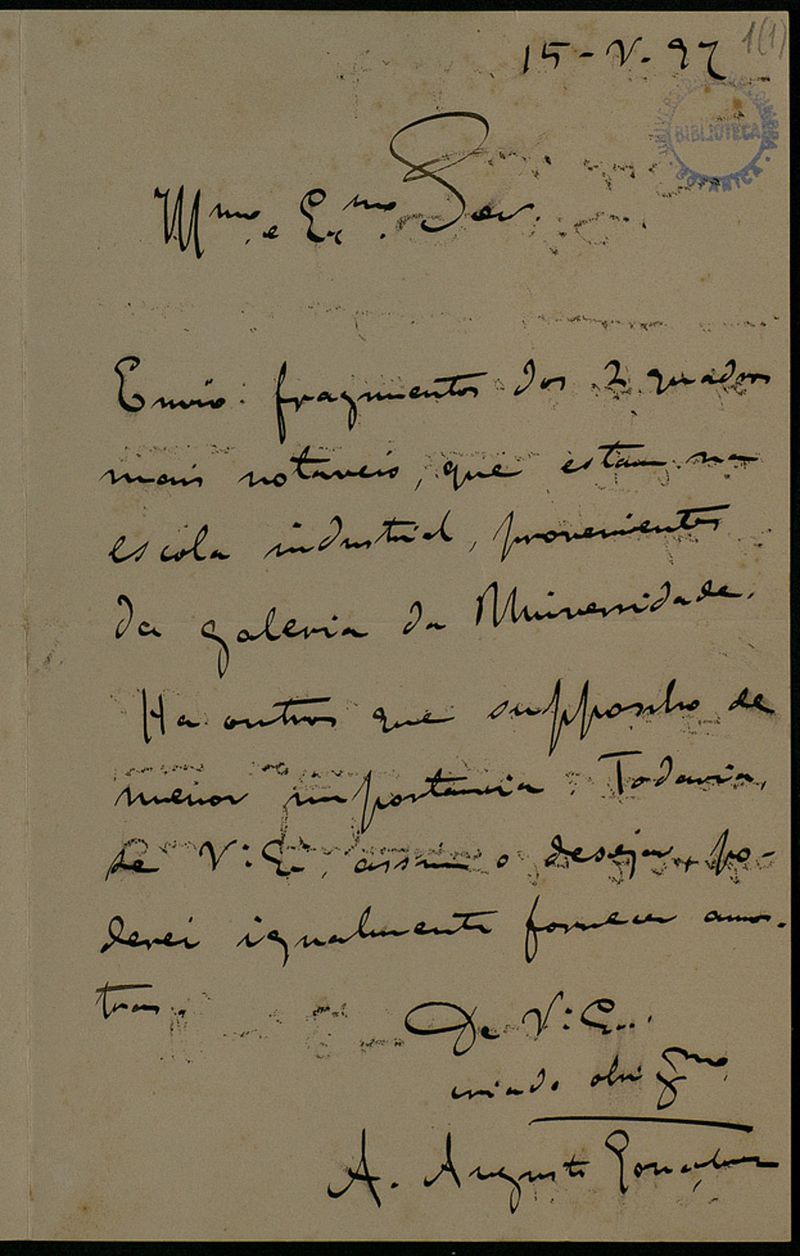 1(1)
15-V-97
UNIVERSIDADE DE COIMBRA
BIBLIOTECA
BOTANICA
Illmo. e Exmo. Snr.
Envio fragmentos dos 2 quadros
mais notaveis, que estam na
escola industrial, provenientes
da galeria da Universidade.
Ha outros que supponho de
menor importancia. Todavia,
se V. Ex. assim o desejar, po-
derei igualmente fornecer amos-
tras.
De V. Ex.
criado obrigmo
A. Augusto Gonçalves